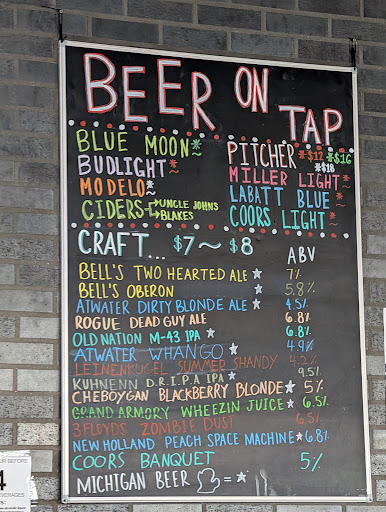 BEER ON TAP
BLUE MOON*~
BUDLIGHT*~
MODELO*~
CIDERS UNCLE JOHNS
BLAKES
PITCHER *$12 *$16
*$18
MILLER LIGHT*
LABATT BLUE*
COORS LIGHT*
CRAFT... $7~ $8
ABV
BELL'S TWO HEARTED ALE ★ 7%
BELL'S OBERON ★ 5.8%
ATWATER DIRTY BLONDE ALE ★ 4.5%
ROGUE DEAD GUY ALE 6.8%
OLD NATION M-43 IPA ★ 6.8%
ATWATER WHANGO ★ 4.9%
LEINENKUGEL SUMMER SHANDY 4.2%
KUHNENN D.R.I.P.A IPA ★ 9.5%
CHEBOYGAN BLACKBERRY BLONDE ★ 5%
GRAND ARMORY WHEEZIN JUICE ★ 6.5%
3 FLOYDS ZOMBIE DUST 6.5%
NEW HOLLAND PEACH SPACE MACHINE ★ 6.8%
COORS BANQUET 5%
MICHIGAN BEER = ★
BEFORE
4
BEVERAGES